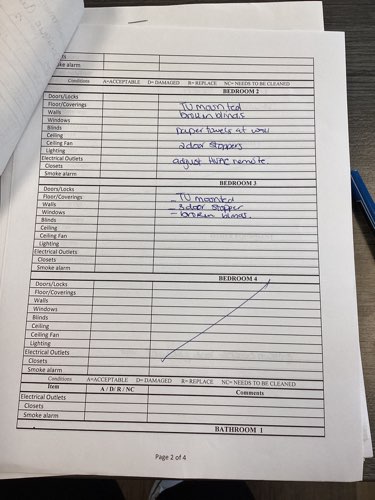 ts
ke alarm
Conditions A=ACCEPTABLE D= DAMAGED R= REPLACE NC= NEEDS TO BE CLEANED
BEDROOM 2
Doors/Locks
Floor/Coverings TV mounted
Walls broken blinds
Windows
Blinds paper towels at wall
Ceiling
Ceiling Fan 2 door stoppers
Lighting
Electrical Outlets adjust HVAC remote.
Closets
Smoke alarm
BEDROOM 3
Doors/Locks
Floor/Coverings TV mounted
Walls - 3 door stopper
Windows - broken blinds.
Blinds
Ceiling
Ceiling Fan
Lighting
Electrical Outlets
Closets
Smoke alarm
BEDROOM 4
Doors/Locks
Floor/Coverings
Walls
Windows
Blinds
Ceiling
Ceiling Fan
Lighting
Electrical Outlets
Closets
Smoke alarm
Conditions A=ACCEPTABLE D= DAMAGED R= REPLACE NC= NEEDS TO BE CLEANED
Item A / D/ R / NC Comments
Electrical Outlets
Closets
Smoke alarm
BATHROOM 1
Page 2 of 4